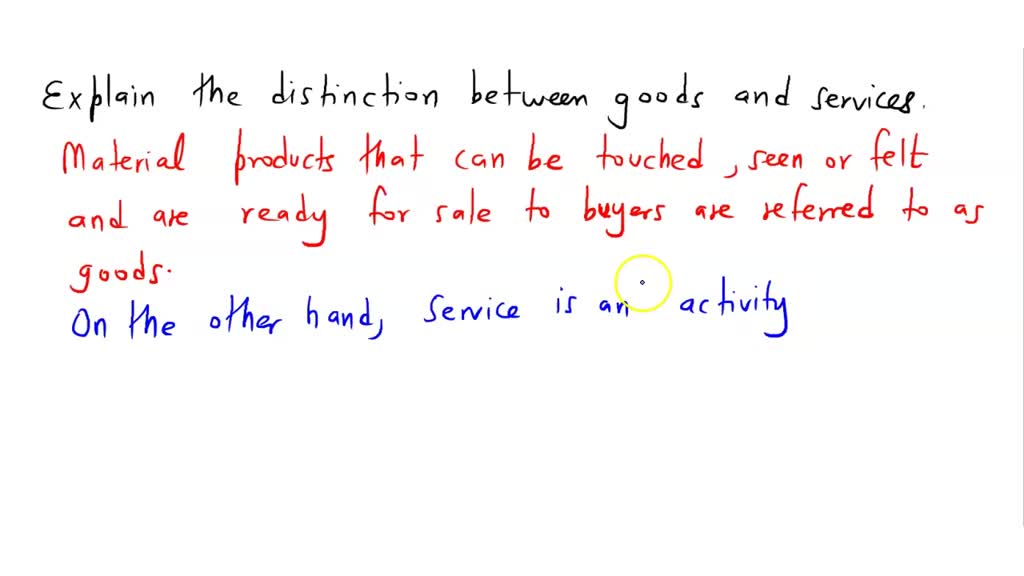 Explain the distinction between goods and services.
Material products that can be touched, seen or felt
and are ready for sale to buyers are referred to as
goods.
On the other hand, Service is an activity